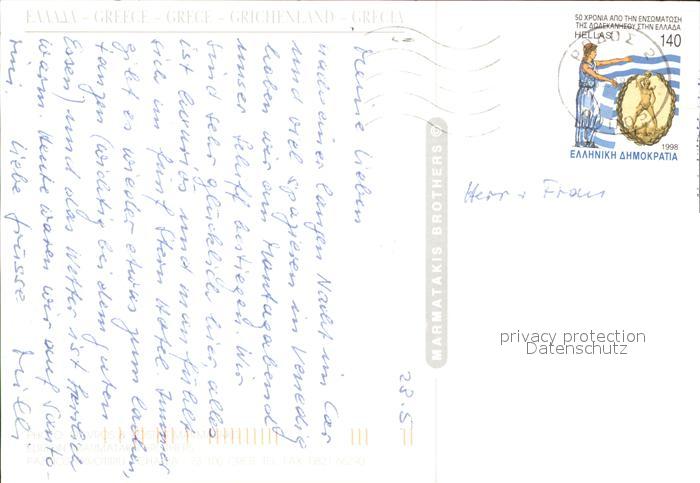 ΕΛΛΑΔΑ - GREECE - GRECE - GRICHENLAND - GRECIA
Meine Lieben
nach einer langen Nacht im Car
und viel spazieren in Venedig
haben wir am Montagabend
unser Schiff bestiegen. Wir
sind sehr glücklich hier alles
ist luxuriös und man fühlt
sich im fünf Stern Hotel. Immer
gibt es wieder etwas zum lachen,
tanzen (wichtig bei dem guten
Essen) und das Wetter ist herrlich
warm. Heute waren wir auf Santo-
rini. Liebe Grüsse
28.5
MARMATAKIS BROTHERS ©
50 ΧΡΟΝΙΑ ΑΠΟ ΤΗΝ ΕΝΣΩΜΑΤΩΣΗ
ΤΗΣ ΔΩΔΕΚΑΝΗΣΟΥ ΣΤΗΝ ΕΛΛΑΔΑ
HELLAS 140
ΡΟΔΟΣ 2
1998
ΕΛΛΗΝΙΚΗ ΔΗΜΟΚΡΑΤΙΑ
Herr + Frau
privacy protection
Datenschutz